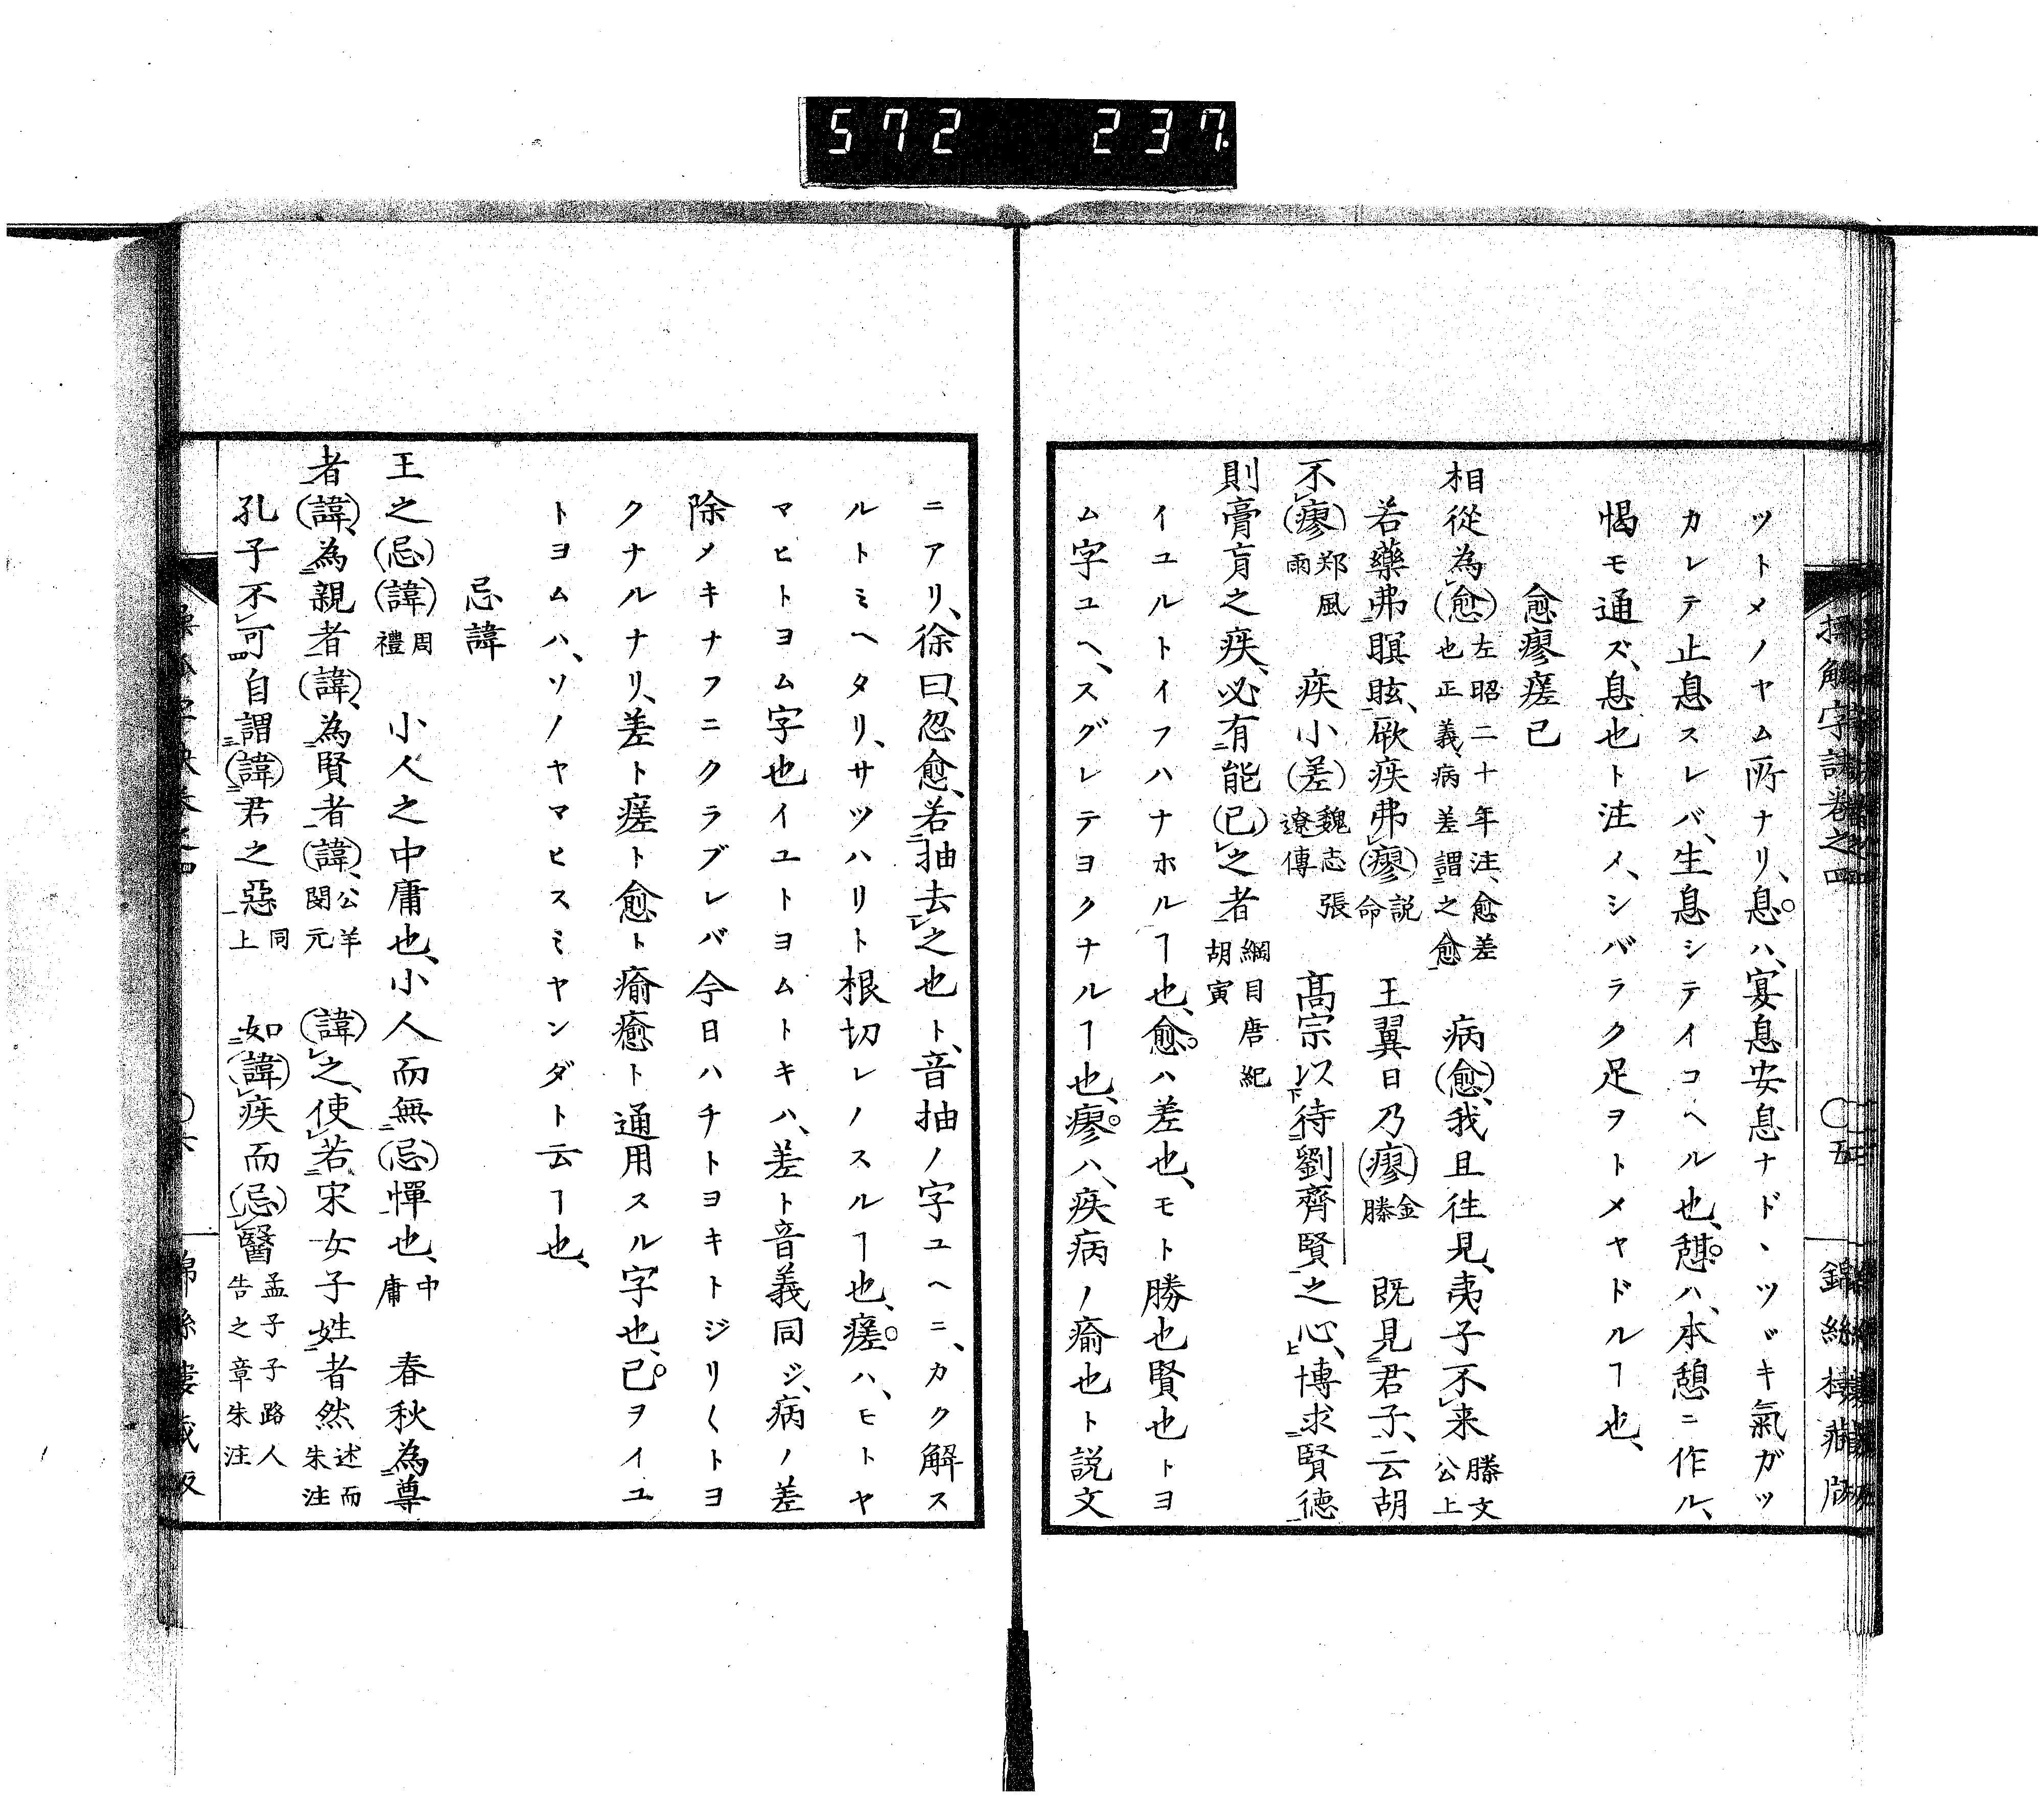 572 237.
ツトメノヤム所ナリ、息ハ、宴息安息ナド、ツヾキ氣ガツ
カレテ止息スレバ、生息シテイコヘル也、憇ハ、本憩ニ作ル、
愒モ通ズ、息也ト注メ、シバラク足ヲトメヤドルヿ也、
愈瘳瘥已
相從為(愈)左昭二十年注、愈差也正義病差謂之愈 病(愈)、我且往見、夷子不来滕文公上
若藥弗瞑眩、厥疾弗(瘳)説命 王翼日乃(瘳)金滕 既見君子、云胡
不(瘳)郑風雨 疾小(差)魏志張遼傳 高宗以下待劉齊賢之心上、博求賢德
則膏肓之疾、必有能(已)之者綱目唐紀胡寅
イユルトイフハナホルヿ也、愈ハ差也、モト勝也賢也トヨ
ム字ユヘ、スグレテヨクナルヿ也、瘳ハ、疾病ノ癒也ト説文
ニアリ、徐曰、忽愈、若抽去之也ト、音抽ノ字ユヘニ、カク解ス
ルトミヘタリ、サツハリト根切レノスルヿ也、瘥ハ、ヒトヤ
マヒトヨム字也イユトヨムトキハ、差ト音義同ジ、病ノ差
除メキナフニクラブレバ今日ハチトヨキトジリ〱トヨ
クナルナリ、差ト瘥ト愈ト瘉癒ト通用スル字也、已ヲイユ
トヨムハ、ソノヤマヒスミヤンダト云ヿ也、
忌諱
王之(忌)(諱)周禮 小人之中庸也、小人而無(忌)憚也、中庸 春秋為尊
者(諱)、為親者(諱)、為賢者(諱)、公羊閔元 (諱)之、使若宋女子姓者然述而朱注
孔子不可自謂(諱)君之惡同上 如(諱)疾而(忌)醫孟子子路人告之章朱注